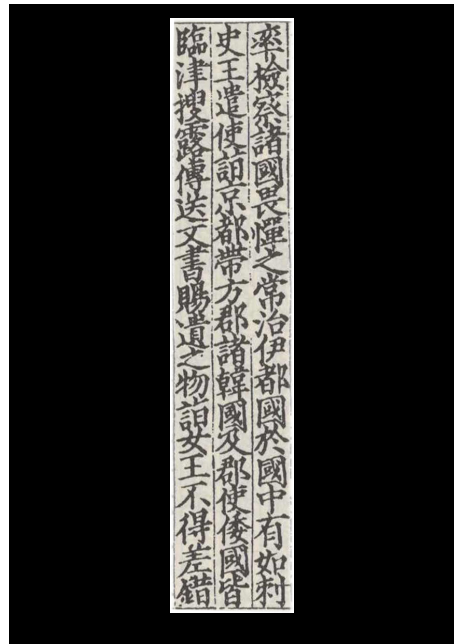 率檢察諸國畏憚之常治伊都國於國中有如刺
史王遣使詣京都帶方郡諸韓國及郡使倭國皆
臨津搜露傳送文書賜遺之物詣女王不得差錯